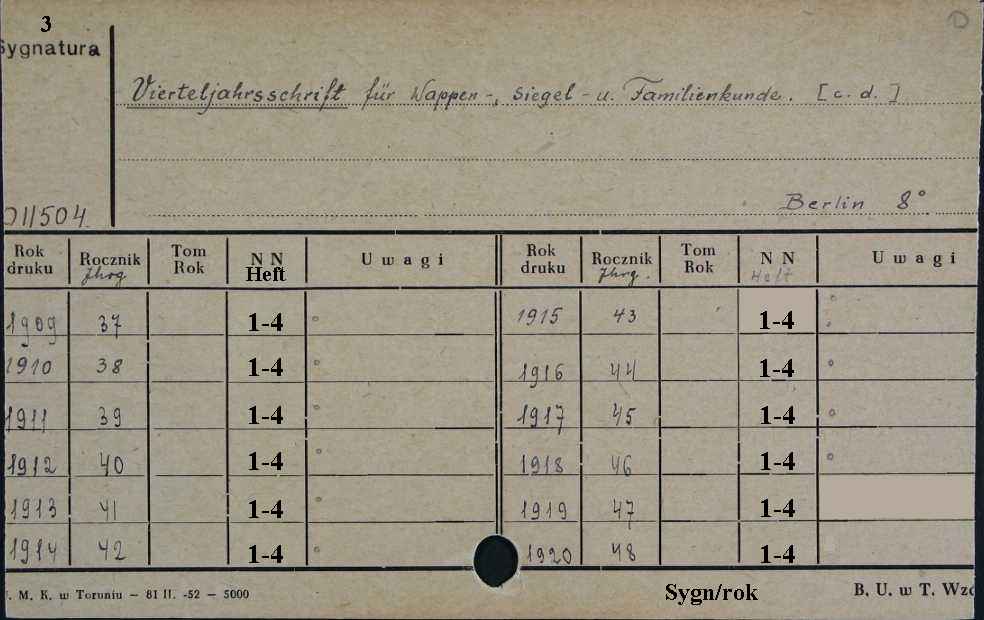 3
Sygnatura
Vierteljahrsschrift für Wappen-, Siegel- u. Familienkunde. [c. d.]
011504
Berlin 8°
Rok druku Rocznik Jhrg Tom Rok N N Heft Uwagi Rok druku Rocznik Jhrg. Tom Rok N N Heft Uwagi
1909 37 1-4 1915 43 1-4
1910 38 1-4 1916 44 1-4
1911 39 1-4 1917 45 1-4
1912 40 1-4 1918 46 1-4
1913 41 1-4 1919 47 1-4
1914 42 1-4 1920 48 1-4
. M. K. w Toruniu — 81 II. -52 — 5000 Sygn/rok B. U. w T. Wzo